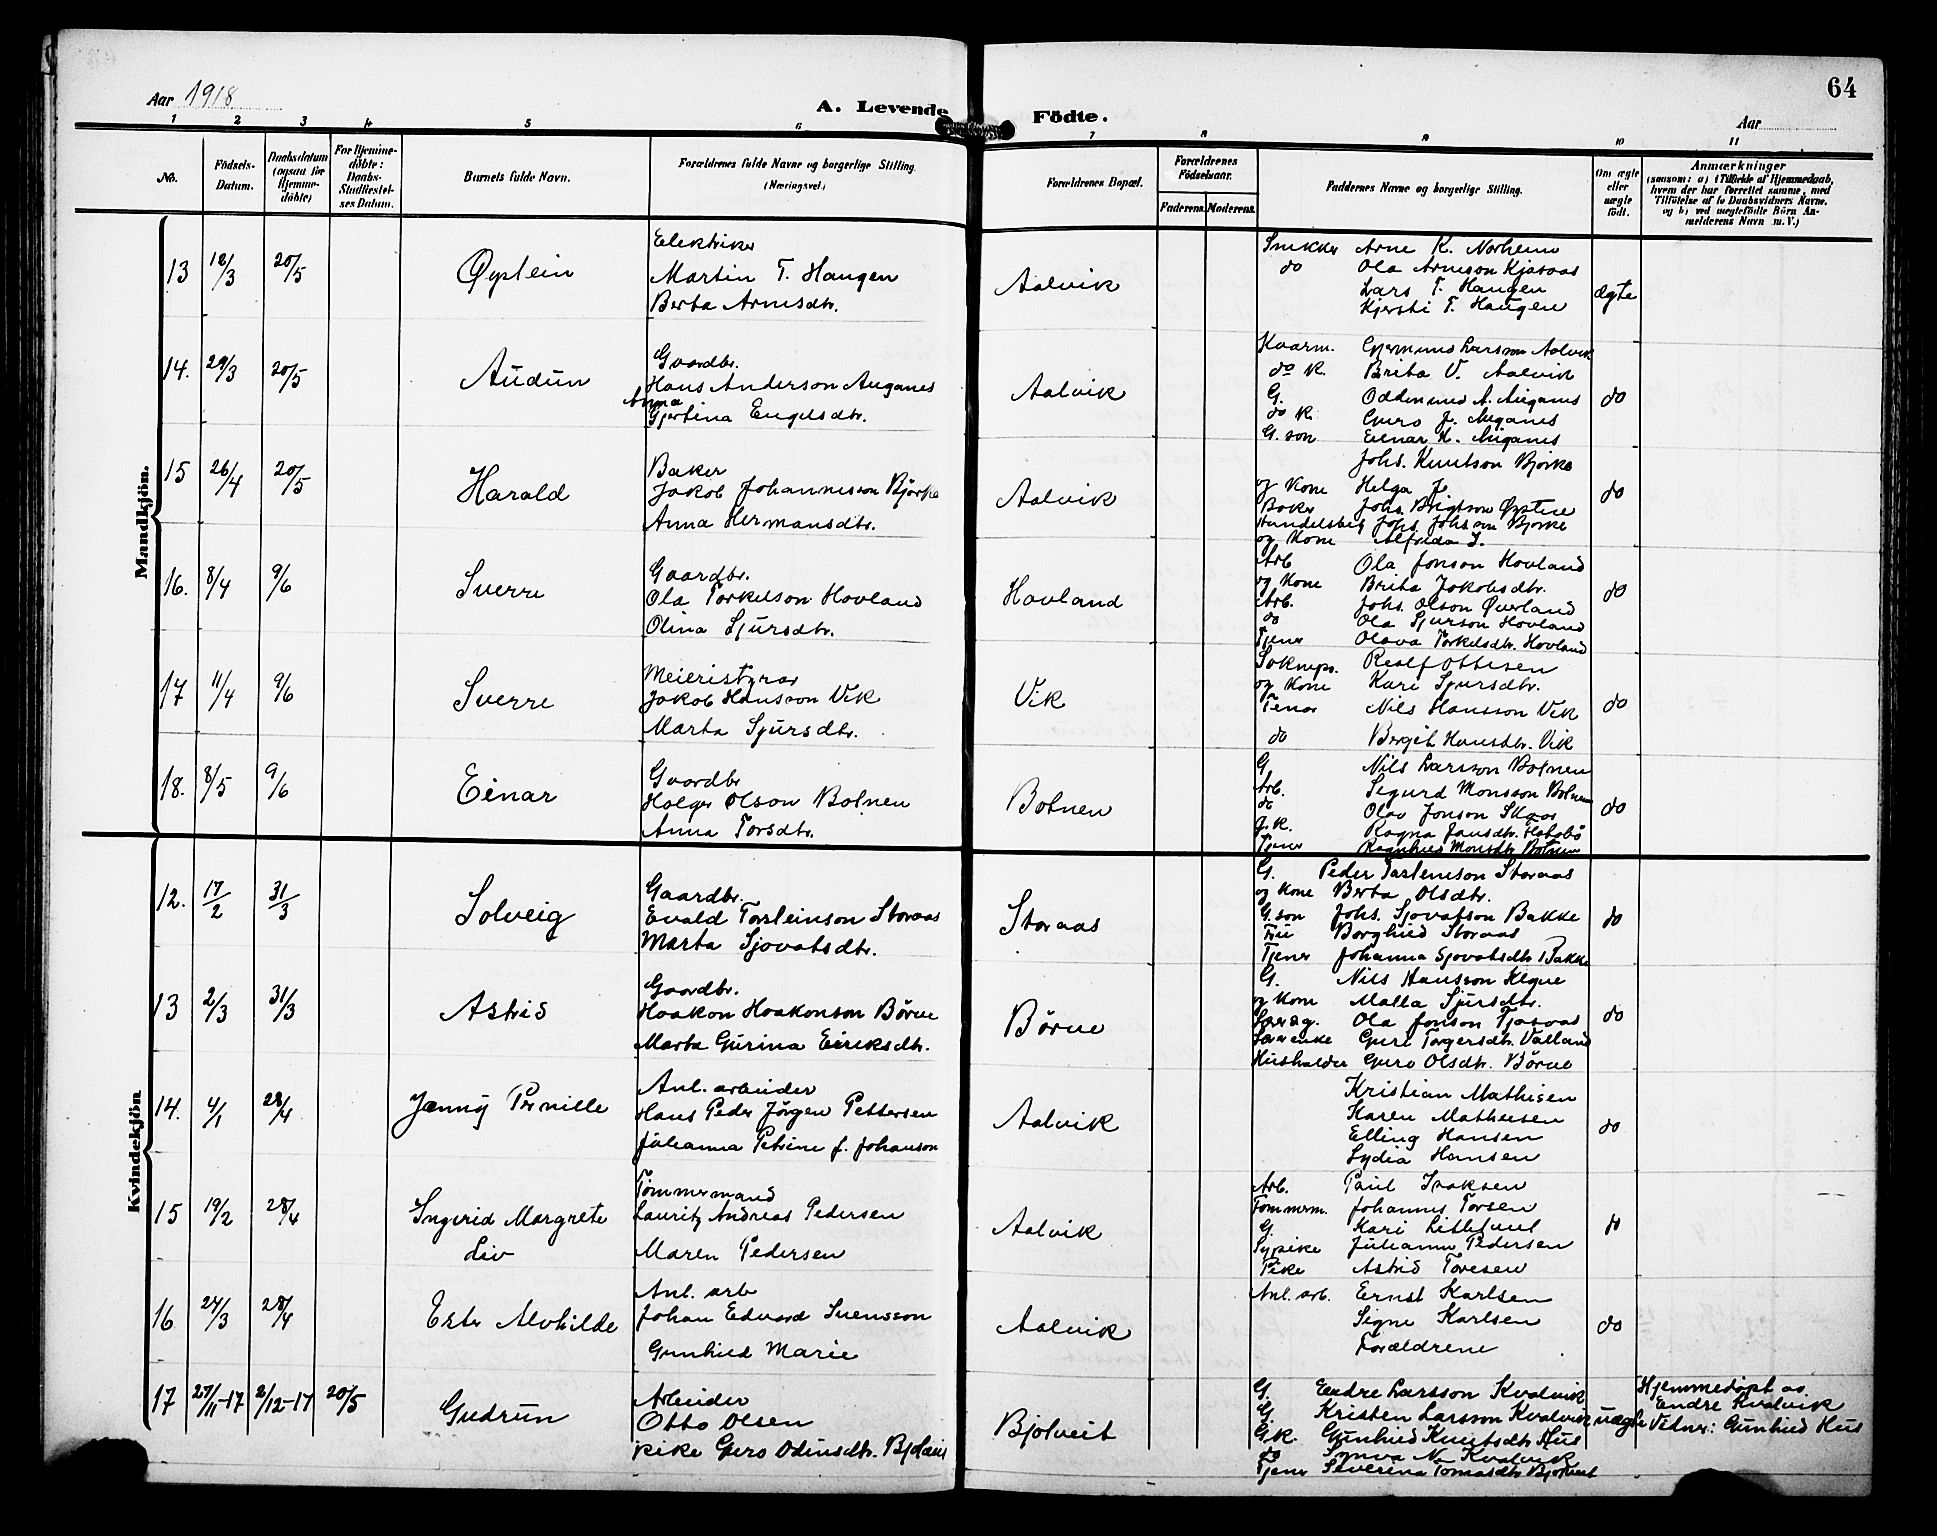 64
Aar 1918
A. Levende Födte.
Aar
1 2 3 4 5 6 7 8 9 10 11
No.
Födsels-Datum.
Daabsdatum (ogsaa for Hjemme-döbte)
For Hjemme-döbte: Daabs-Stadfæstel-ses Datum.
Barnets fulde Navn.
Forældrenes fulde Navne og borgerlige Stilling.
(Næringsvei.)
Forældrenes Bopæl.
Forældrenes Födselsaar.
Faderens. Moderens.
Faddernes Navne og borgerlige Stilling.
Om ægte eller uægte födt.
Anmærkninger
(saasom: a) i Tilfælde af Hjemmedaab, hvem der har forrettet samme, med Tilföielse af to Daabsvidners Navne, og b) ved uægtefödte Börn An-melderens Navn m. V.)
Mandkjön.
13 18/3 20/5 Øystein
Elektriker
Martin T. Haugen
Berta Arnesdtr.
Aalvik
Snikker Arne K. Norheim
do Ola Arneson Kjosaas
Lars T. Haugen
Kjersti T. Haugen
ægte
14. 29/3 20/5 Audun
Gaardbr.
Hans Anderson Auganes
Anna
Gjertina Engelsdtr.
Aalvik
Kaarm. Gjermund Larsson Aalvik
do K. Brita V. Aalvik
G. Oddmund A. Auganes
do K. Guro J. Auganes
G. son Einar H. Auganes
do
15 26/4 20/5 Harald
Baker
Jakob Johannesson Bjørke
Anna Hermansdtr.
Aalvik
Johs. Knutson Bjørke
og Kone Helga J.
Baker Johs. Brigtson Øystese
Handelsbetj Johs. Johsson Bjørke
og Kone Alfrida J.
do
16. 8/4 9/6 Sverre
Gaardbr.
Ola Torkelson Hovland
Olina Sjursdtr.
Hovland
Arb Ola Jonson Hovland
og Kone Brita Jakobsdtr.
Arb. Johs. Olson Øverland
do Ola Sjurson Hovland
Tjener Olava Torkelsdtr. Hovland
do
17 11/4 9/6 Sverre
Meieristyrar
Jakob Hansson Vik
Marta Sjursdtr.
Vik
Soknepr. Realf Ottesen
og Kone Kari Sjursdtr.
Tenar Nils Hansson Vik
do Bergit Hansdtr. Vik
do
18. 8/5 9/6 Einar
Gaardbr
Holger Olson Botnen
Anna Torsdtr.
Botnen
G Nils Larsson Botnen
Arb. Sigurd Monsson Botnen
do Olav Jonson Skaar
G.K. Ragna Jansdtr.
Tjener Ragnhild Monsdtr Botnen
do
Kvindekjön
12. 17/2 31/3 Solveig
Gaardbr.
Evald Torsteinson Storaas
Marta Sjovatsdtr.
Storaas
G. Peder Torsteinson Storaas
og Kone Berta Olsdtr.
G.son Johs. Sjovatson Bakke
Fru Borghild Storaas
Tjener Johanna Sjovatsdtr Bakke
do
13 2/3 31/3 Astrid
Gaardbr.
Haakon Haakonson Børve
Marta Gurina Eiriksdtr.
Børve
G. Nils Hansson
og Kone Malla Sjursdtr.
Ola Jonson
Guri Torgersdtr. Valland
Husholder Guro Olsdtr. Børve
do
14. 4/1 28/4 Jenny Pernille
Anl. arbeider
Hans Peder Jörgen Pettersen
Julianna Petrine f. Johanson
Aalvik
Kristian Mathisen
Karen Mathiesen
Elling Hansen
Lydia Hansen
do
15 19/2 28/4 Ingerid Margrete
Liv
Tömmermand
Lauritz Andreas Pedersen
Maren Pedersen
Aalvik
Arb. Paul Isaksen
Tømmerm. Johannes Torsen
G. Kari Litletun
Sypike Julianne Pedersen
Pike Astrid Toresen
do
16 24/3 28/4 Ester Alvhilde
Anl. arb
Johan Edvard Svensson
Gunhild Marie
Aalvik
Anl. arb. Ernst Karlsen
Signe Karlsen
Forældrene
do
17 27/11-17 2/12-17 20/5 Gudrun
Arbeider
Otto Olsen
pike Guro Odinsdtr. Bjolveit
Bjolveit
G. Endre Larsson Kvalvik
G. Kristen Larsson Kvalvik
G.K. Gunhild Knutsdtr Hus
do Synva N. Kvalvik
Tjener Severina Tomasdtr Bjolveit
uægte
Hjemmedøpt av
Endre Kvalvik
Vidner: Gunhild Hus